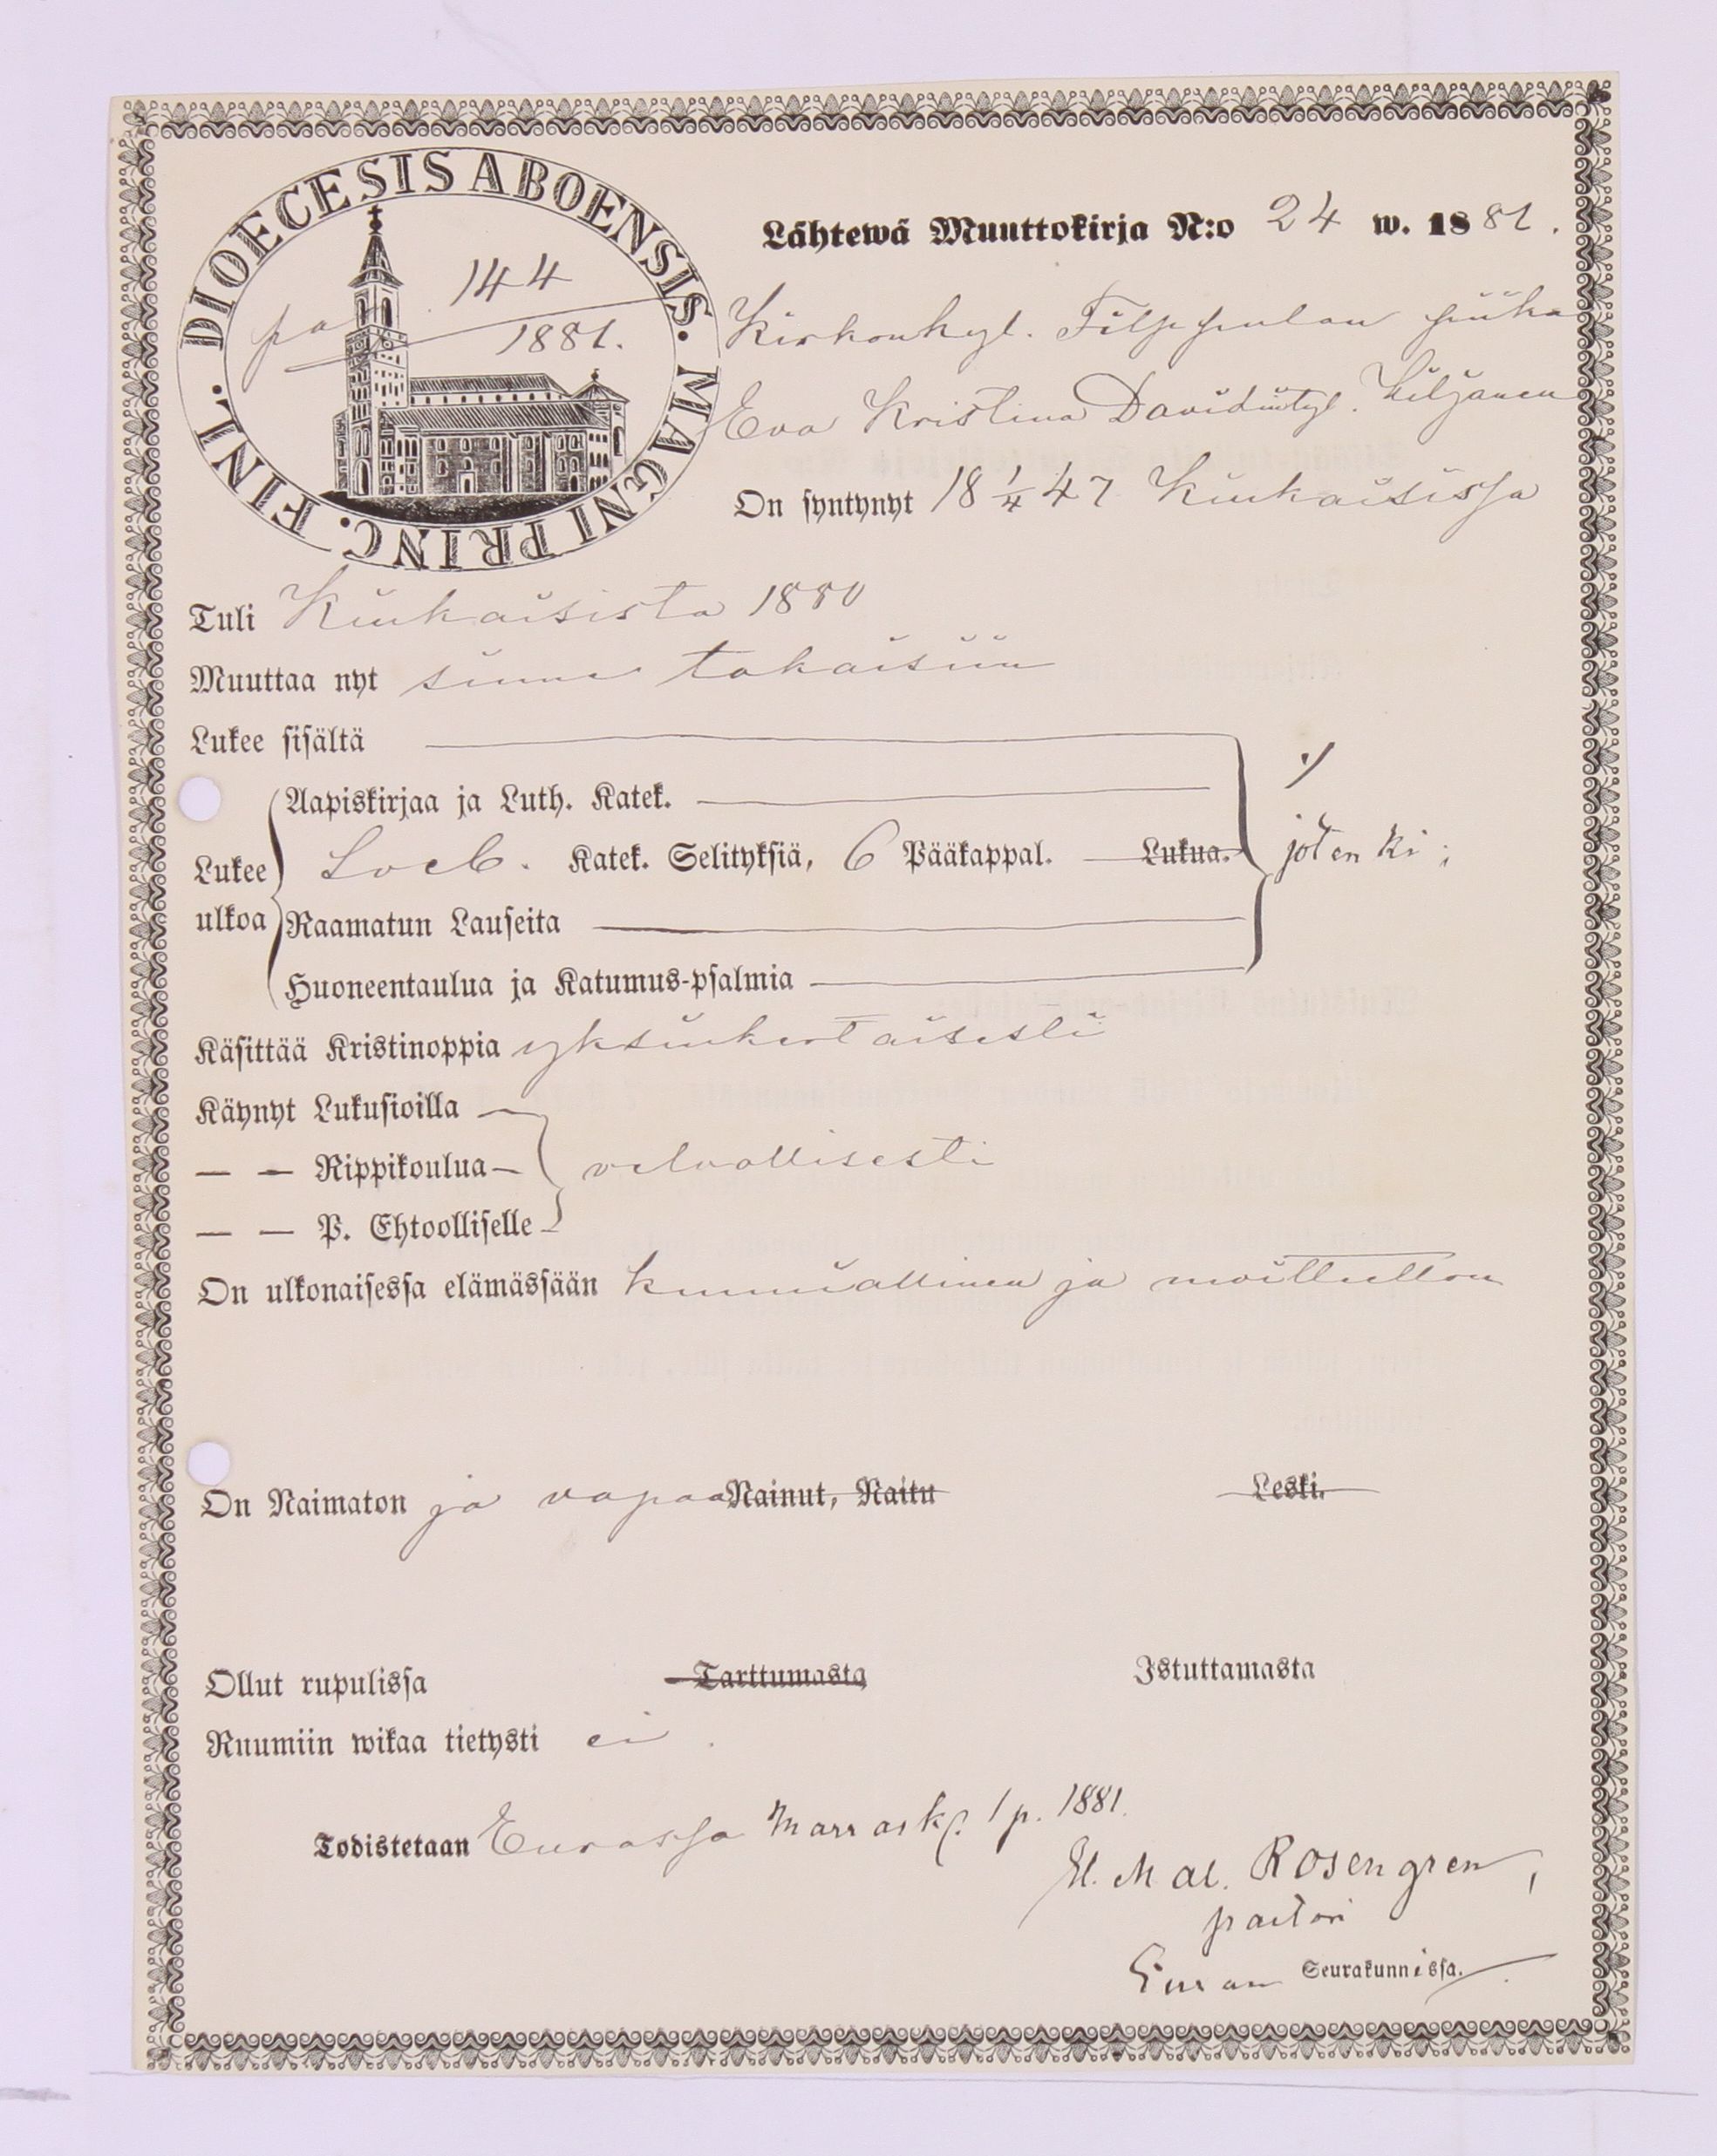 DIOECESIS ABOENSIS. MAGNI PRINC. FINL.
pag 144
1881.
Lähtewä Muuttokirja N:o 24 w. 1881.
Kirkonkyl. Filppulan piika
Eva Kristina Davidintyt. Kiljanen
On syntynyt 18 1/4 47 Kiukaisissa
Tuli Kiukaisista 1880
Muuttaa nyt sinne takaisiin
Lukee sisältä
Aapiskirjaa ja Luth. Katek.
Lukee ulkoa
Katek. Selityksiä, 6 Pääkappal. Lukua. jotenki;
Raamatun Lauseita
Huoneentaulua ja Katumus-psalmia
Käsittää Kristinoppia yksinkertaisesti
Käynyt Lukusioilla
— — Rippikoulua — velvollisesti
— — P. Ehtoolliselle
On ulkonaisessa elämässään kunniallinen ja moitteeton
On Naimaton ja vapaa Nainut, Naitu Leski.
Ollut rupulissa Tarttumasta Istuttamasta
Ruumiin wikaa tietysti ei.
Todistetaan Eurassa Marrask. 1 p. 1881.
Rosengren,
pastori
Euran Seurakunnissa.